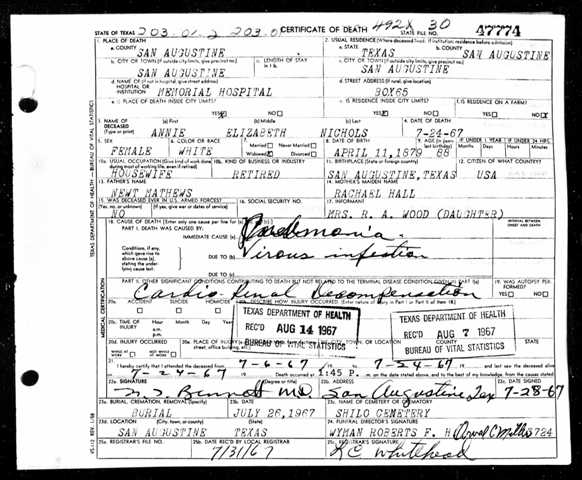 STATE OF TEXAS 203.01-2 203.0 CERTIFICATE OF DEATH 492X 30 STATE FILE NO. 47774
1. PLACE OF DEATH 2. USUAL RESIDENCE (Where deceased lived. If institution: residence before admission)
a. COUNTY a. STATE b. COUNTY
SAN AUGUSTINE TEXAS SAN AUGUSTINE
b. CITY OR TOWN (If outside city limits, give precinct no.) c. LENGTH OF STAY in 1 b. c. CITY OR TOWN (If outside city limits, give precinct no.)
SAN AUGUSTINE SAN AUGUSTINE
d. NAME OF (If not in hospital, give street address) HOSPITAL OR INSTITUTION d. STREET ADDRESS
MEMORIAL HOSPITAL BOX65
e. IS PLACE OF DEATH INSIDE CITY LIMITS? e. IS RESIDENCE INSIDE CITY LIMITS? f. IS RESIDENCE ON A FARM?
YES NO YES NO YES NO
3. NAME OF DECEASED (Type or print) (a) First (b) Middle (c) Last 4. DATE OF DEATH
ANNIE ELIZABETH NICHOLS 7-24-67
5. SEX 6. COLOR OR RACE 7. Married Never Married Widowed Divorced 8. DATE OF BIRTH 9. AGE IF UNDER 1 YEAR IF UNDER 24 HRS.
FEMALE WHITE APRIL 11,1879 88
10a. USUAL OCCUPATION (Give kind of work done during most of working life, even if retired) 10b. KIND OF BUSINESS OR INDUSTRY 11. BIRTHPLACE (State or foreign country) 12. CITIZEN OF WHAT COUNTRY?
HOUSEWIFE RETIRED SAN AUGUSTINE, TEXAS USA
13. FATHER'S NAME 14. MOTHER'S MAIDEN NAME
NEWT MATHEWS RACHAEL HALL
15. WAS DECEASED EVER IN U.S. ARMED FORCES? 16. SOCIAL SECURITY NO. 17. INFORMANT
(Yes, no, or unknown) (If yes, give war or dates of service)
NO MRS. R. A. WOOD (DAUGHTER)
18. CAUSE OF DEATH (Enter only one cause per line for INTERVAL BETWEEN ONSET AND DEATH
PART I. DEATH WAS CAUSED BY:
IMMEDIATE CAUSE (a) Pneumonia.
Conditions, if any, which gave rise to above cause (a) stating the underlying cause last.
DUE TO (b) Virous infection
DUE TO (c)
PART II. OTHER SIGNIFICANT CONDITIONS CONTRIBUTING TO DEATH BUT NOT RELATED TO THE TERMINAL DISEASE CONDITION 19. WAS AUTOPSY PERFORMED?
Cardio Renal Decompensation YES NO
20a. ACCIDENT SUICIDE HOMICIDE 20b. DESCRIBE HOW INJURY OCCURRED. (Enter nature of injury in Part I or Part II of item 18.)
20c. TIME OF INJURY Hour Month Day Year
a.m.
p.m.
TEXAS DEPARTMENT OF HEALTH
REC'D AUG 14 1967
BUREAU OF VITAL STATISTICS
TEXAS DEPARTMENT OF HEALTH
REC'D AUG 7 1967
BUREAU OF VITAL STATISTICS
20d. INJURY OCCURRED WHILE AT WORK NOT WHILE AT WORK
I hereby certify that I attended the deceased from 7-6-67 to 7-24-67 and last saw the deceased alive
on 7-24-67 Death occurred at 1:45 P. m. on the date stated above, and to the best of my knowledge, from the causes stated.
22a. SIGNATURE (Degree or title) 22b. ADDRESS 22c. DATE SIGNED
Bennett MD San Augustine Tex 7-28-67
23a. BURIAL, CREMATION, REMOVAL (Specify) 23b. DATE 23c. NAME OF CEMETERY OR CREMATORY
BURIAL JULY 26,1967 SHILO CEMETERY
23d. LOCATION (City, town, or county) (State) 24. FUNERAL DIRECTOR'S SIGNATURE
SAN AUGUSTINE TEXAS WYMAN ROBERTS F. H 5724
25a. REGISTRAR'S FILE NO. 25b. DATE REC'D BY LOCAL REGISTRAR 25c. REGISTRAR'S SIGNATURE
7/31/67 Whitehead
TEXAS DEPARTMENT OF HEALTH — BUREAU OF VITAL STATISTICS
MEDICAL CERTIFICATION
VS-112 REV. 1/58